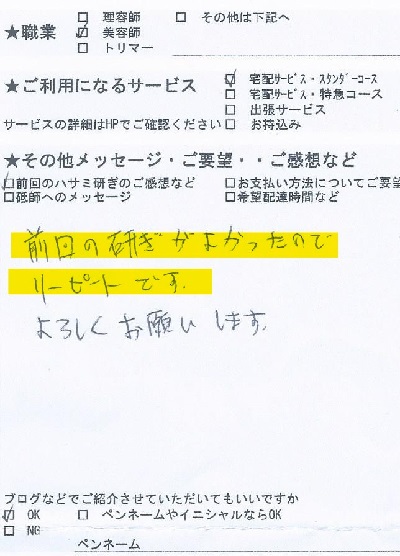 □ 理容師 □ その他は下記へ
★職業 ☑ 美容師
□ トリマー
★ご利用になるサービス ☑ 宅配サービス・スタンダーコース
□ 宅配サービス・特急コース
□ 出張サービス
サービスの詳細はHPでご確認ください □ お持込み
★その他メッセージ・ご要望・・ご感想など
☑前回のハサミ研ぎのご感想など □お支払い方法についてご要望
□砥師へのメッセージ □希望配達時間など
前回の研ぎがよかったので
リピートです。
よろしくお願いします。
ブログなどでご紹介させていただいてもいいですか
☑ OK □ ペンネームやイニシャルならOK
□ NG
ペンネーム